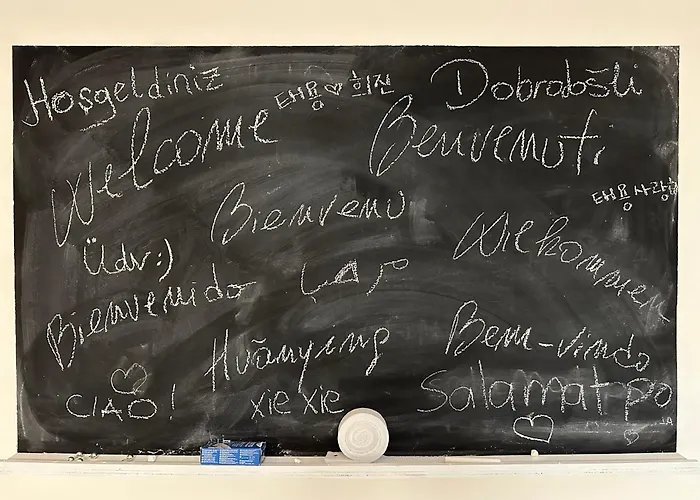 Hoşgeldiniz
태용♡희진
Dobrodošli
Welcome
Benvenuti
태용사랑해
Bienvenu
Üdv:)
Wilkommen
Bienvenido
Huānyíng
Bem-vindo
CIAO!
xie xie
Salamat po